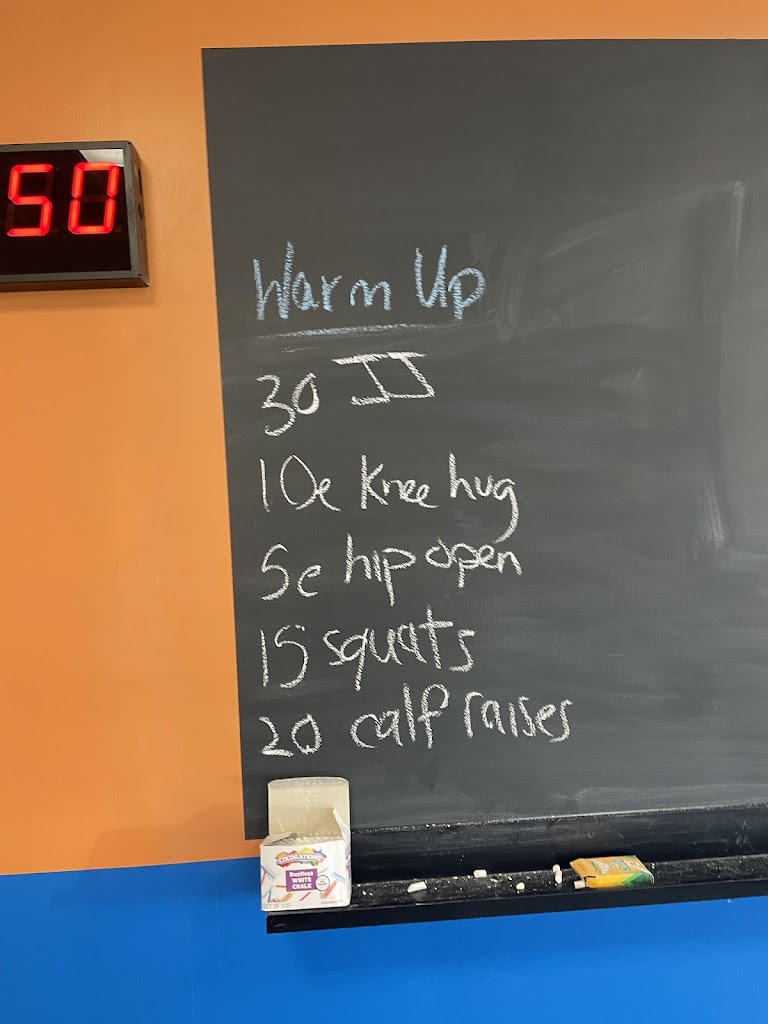 50
Warm Up
30 JJ
10e Knee hug
5e hip open
15 squats
20 calf raises
COLORATIONS
Dustless
WHITE
CHALK
SET OF 100